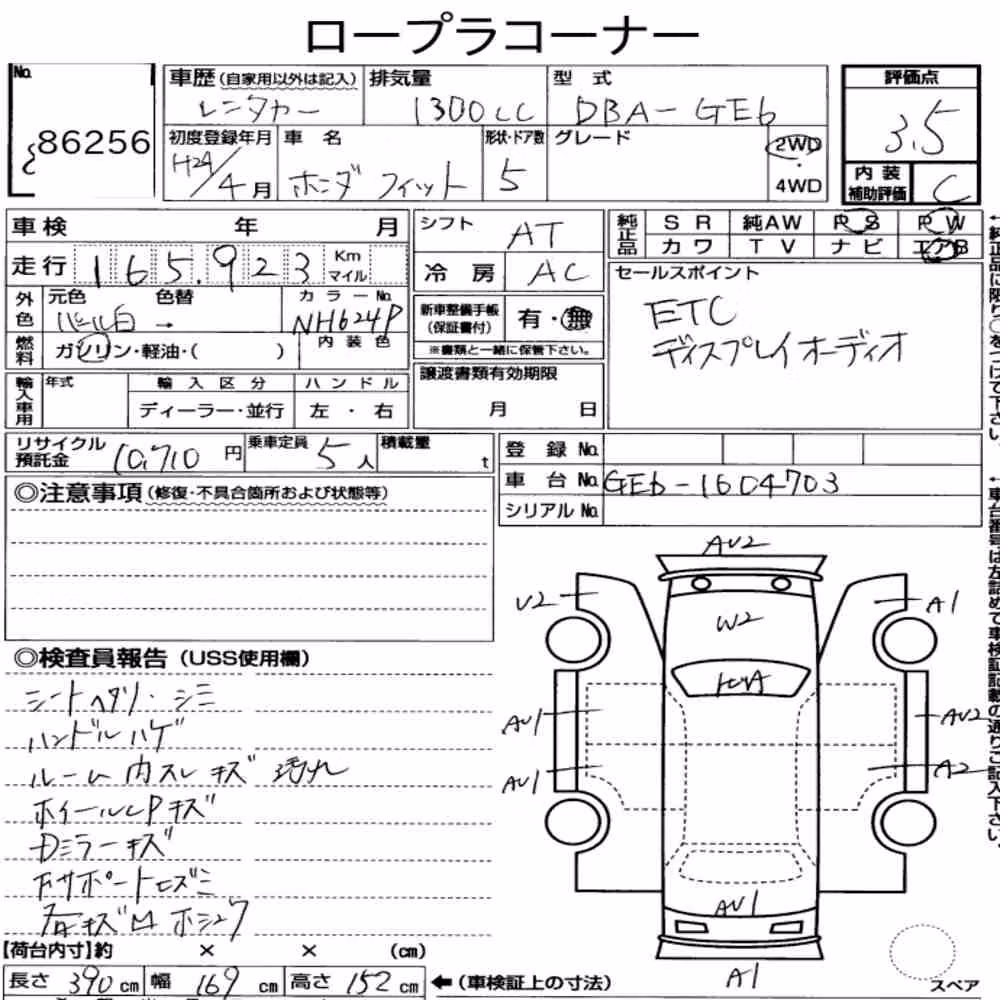 ロープラコーナー
No.
86256
車歴(自家用以外は記入) 排気量 型式 評価点
レンタカー 1300cc DBA-GE6 3.5
初度登録年月 車名 形状・ドア数 グレード 2WD
H24/4月 ホンダ フィット 5 4WD
内装補助評価 C
車検 年 月
シフト AT
純正品 SR 純AW PS PW
カワ TV ナビ エアB
走行 165,923 Km マイル
冷房 AC
セールスポイント
ETC
ディスプレイオーディオ
外色 元色 色替 カラーNo.
パール白 → NH624P
新車整備手帳(保証書付) 有・無
※書類と一緒に保管下さい。
燃料 ガソリン・軽油・( ) 内装色
輸入車用 年式 輸入区分 ハンドル
ディーラー・並行 左・右
譲渡書類有効期限
月 日
リサイクル預託金 10,710円 乗車定員 5人 積載量 t
登録No.
車台No. GE6-1604703
シリアルNo.
◎注意事項(修復・不具合箇所および状態等)
◎検査員報告(USS使用欄)
シートヘタリ・シミ
ハンドルハゲ
ルーム内スレキズ 汚れ
ホイールCPキズ
Dミラーキズ
Fサポートヒズミ
AU2
U2
A1
W2
AU1
AU2
AU1
A2
AU1
A1
【荷台内寸】約 × × (cm)
長さ 390cm 幅 169cm 高さ 152cm ←(車検証上の寸法)
スペア
←純正品に限り○をつけて下さい。
←車台番号は左詰めで車検証記載の通りご記入下さい。